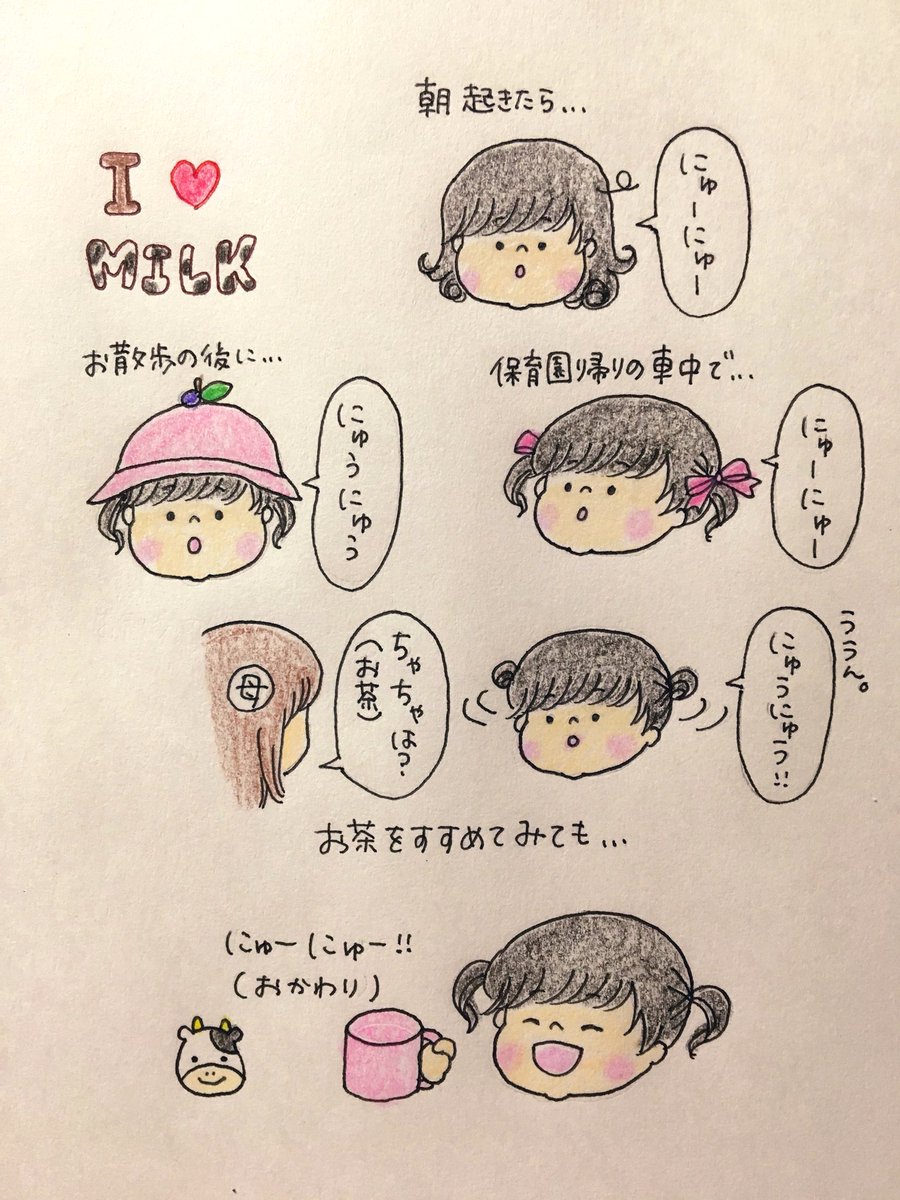 I ♥
MILK
朝起きたら...
にゅーにゅー
お散歩の後に...
にゅうにゅう
保育園帰りの車中で...
にゅーにゅー
母
ちゃちゃは?
(お茶)
ううん。
にゅうにゅう!!
お茶をすすめてみても...
にゅーにゅー!!
(おかわり)